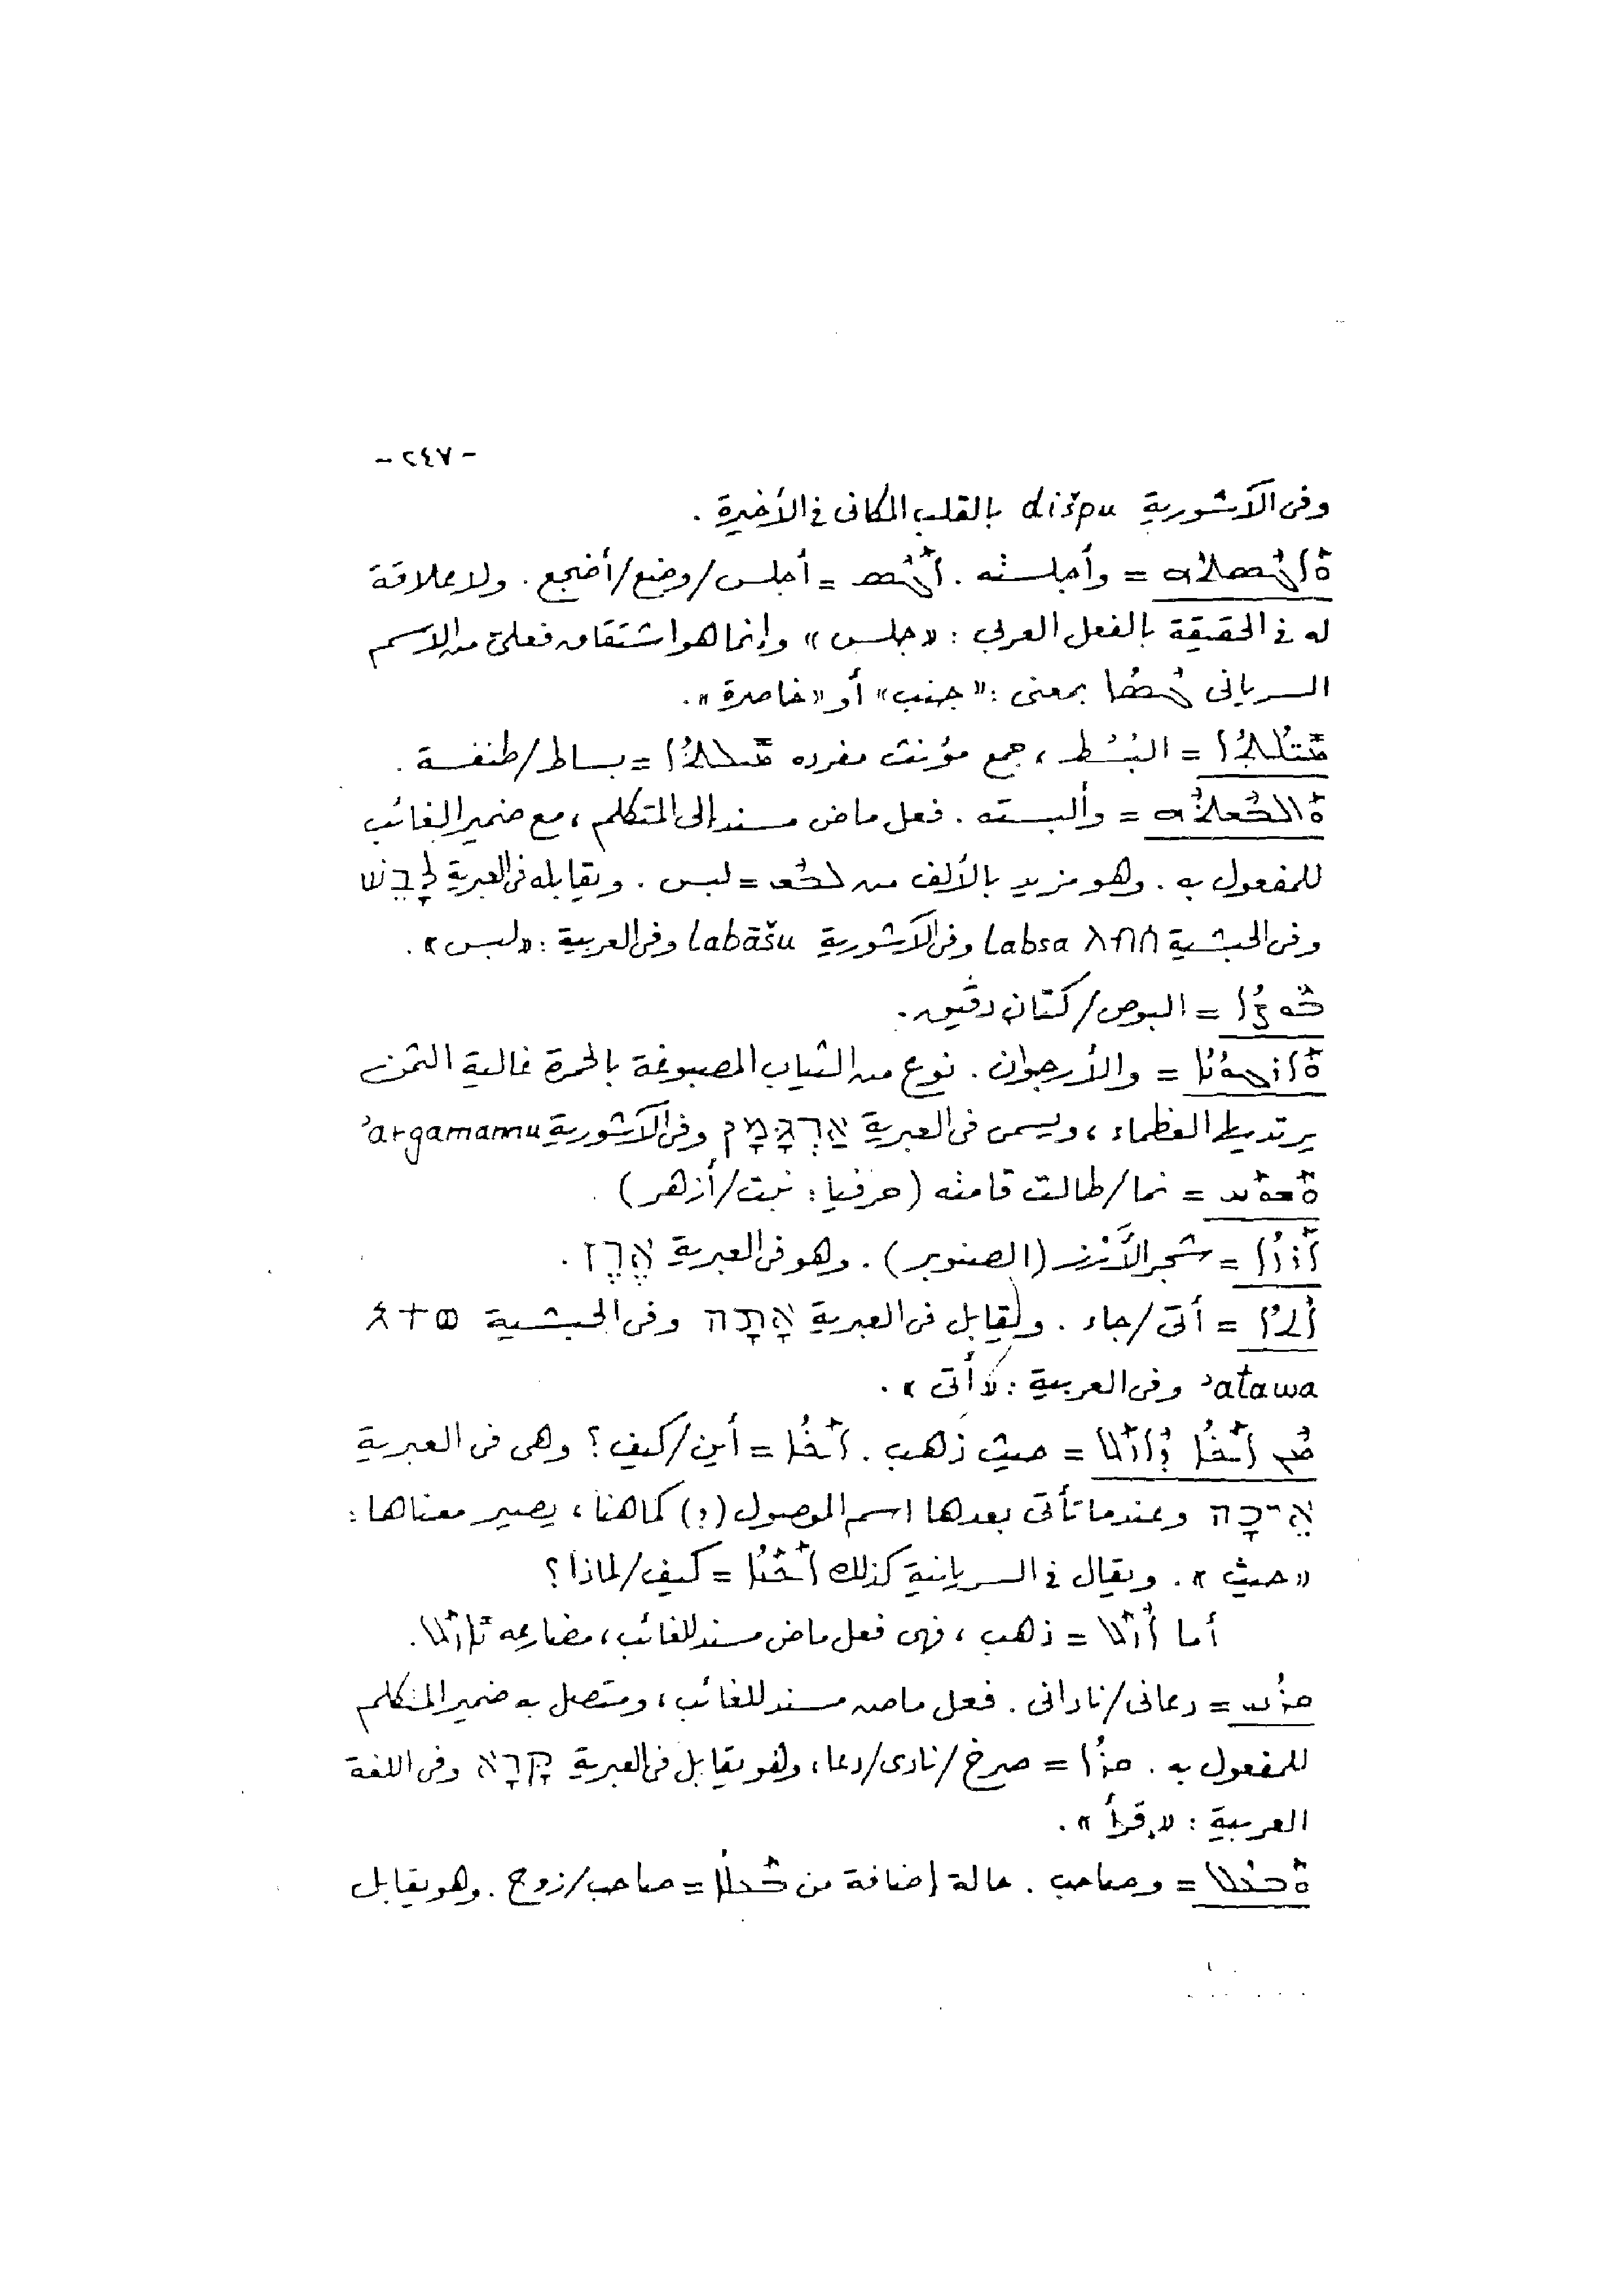 - ٢٤٧ -
وفى الآشورية dišpu بالقلب المكانى فى الأخيرة .
= وأجلسته . = أجلس/وضع/أضجع . ولا علاقة
له فى الحقيقة بالفعل العربى : «جلس» وإنما هو اشتقاق فعلى من الاسم
السريانى بمعنى : «جنب» أو «خاصرة» .
= البُسُط ، جمع مؤنث مفرده = بساط/طنفسة .
= وألبسته . فعل ماض مسند إلى المتكلم ، مع ضمير الغائب
للمفعول به . وهو مزيد بالألف من ܠܒܫ = لبس . ويقابله فى العبرية לָבֵשׁ
وفى الحبشية ለብሰ labsa وفى الآشورية labāšu وفى العربية : «لبس» .
ܒܘܨܐ = البوص/كتان دقيق .
ܘܐܪܓܘܢܐ = والأرجوان . نوع من الثياب المصبوغة بالحمرة غالية الثمن
يرتديها العظماء ، ويسمى فى العبرية אַרְגָּמָן وفى الآشورية argamamu'
ܘܫܘܚ = نما/طالت قامته (حرفيا : نبت/أزهر) .
ܐܪܙܐ = شجر الأَرْز (الصنوبر) . وهو فى العبرية אֶרֶז .
ܐܬܐ = أتى/جاء . ويقابل فى العبرية אָתָה وفى الحبشية አተወ
atawa' وفى العربية : «أتى» .
ܐܝܟܐ ܕܐܙܠ = حيث ذهب . ܐܝܟܐ = أين/كيف ؟ وهى فى العبرية
אֵיכָה وعندما تأتى بعدها اسم الموصول (ܕ) كما هنا ، يصير معناها :
«حيث» . ويقال فى السريانية كذلك ܐܝܟܢܐ = كيف/لماذا ؟
أما ܐܙܠ = ذهب ، فهى فعل ماض مسند للغائب ، مضارعه ܢܐܙܠ .
ܩܪܢܝ = دعانى/نادانى . فعل ماض مسند للغائب ، ومتصل به ضمير المتكلم
للمفعول به . ܩܪܐ = صرخ/نادى/دعا ، وهو يقابل فى العبرية קָרָא وفى اللغة
العربية : «قرأ» .
ܘܒܥܠ = وصاحب . حالة إضافة من ܒܥܠܐ = صاحب/زوج . وهو يقابل